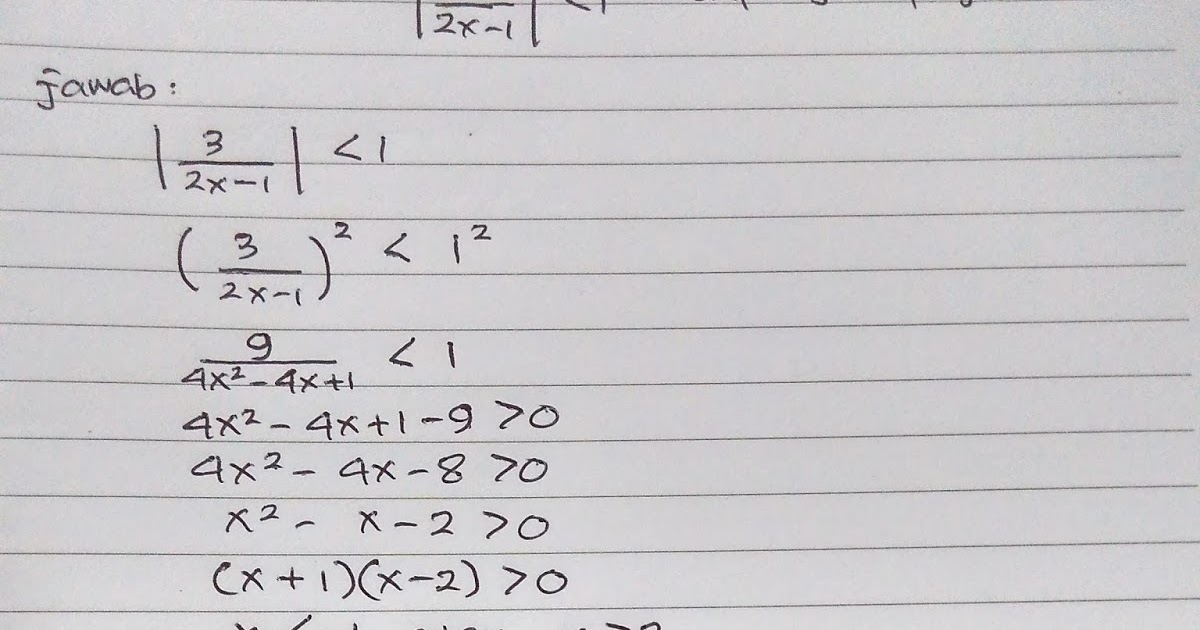 |3/(2x-1)| < 1
jawab :
|3/(2x-1)| < 1
(3/(2x-1))² < 1²
9/(4x²-4x+1) < 1
4x² - 4x + 1 - 9 > 0
4x² - 4x - 8 > 0
x² - x - 2 > 0
(x+1)(x-2) > 0